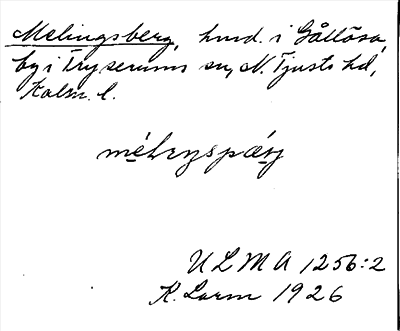 Melingsberg, hmd. i Gållösa,
by i Tryserums sn, N. Tjusts hd,
Kalm. l.
ULMA 1256:2
K. Larm 1926